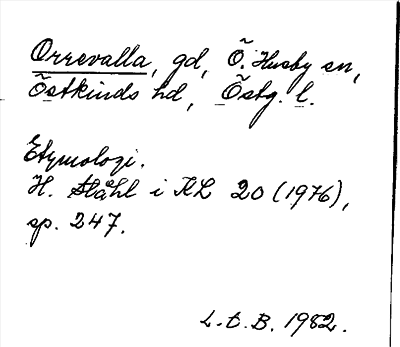 Orrevalla, gd, Ö. Husby sn,
Östkinds hd, Östg. l.
Etymologi.
H. Ståhl i KL 20 (1976),
sp. 247.
L. t. B. 1982.